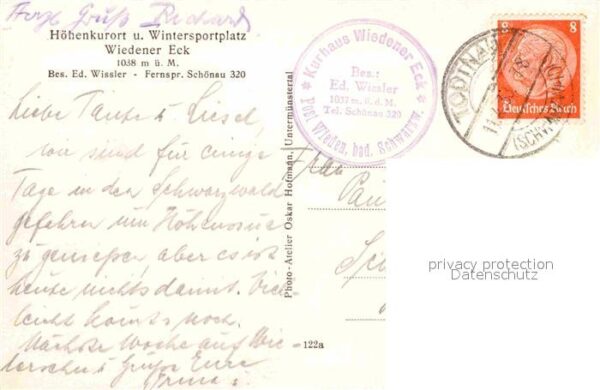 Herzl. Gruß Richard
Höhenkurort u. Wintersportplatz
Wiedener Eck
1038 m ü. M.
Bes. Ed. Wissler - Fernspr. Schönau 320
Liebe Tante u Liesel,
wir sind für einige
Tage in den Schwarzwald
gefahren um Höhensonne
zu genießen, aber es ist
heute nichts damit. Viel-
leicht kommts noch.
Nächste Woche auf Wie-
dersehen u Grüße Eure
Erna
Kurhaus Wiedener Eck
Bes.:
Ed. Wissler
1037 m. ü. d. M.
Tel. Schönau 320
Post Wieden, bad. Schwarzw.
TODTNAU
(SCHWARZW
8 8
Deutsches Reich
Frau
Photo-Atelier Oskar Hofmann, Untermünstertal
122a
privacy protection
Datenschutz